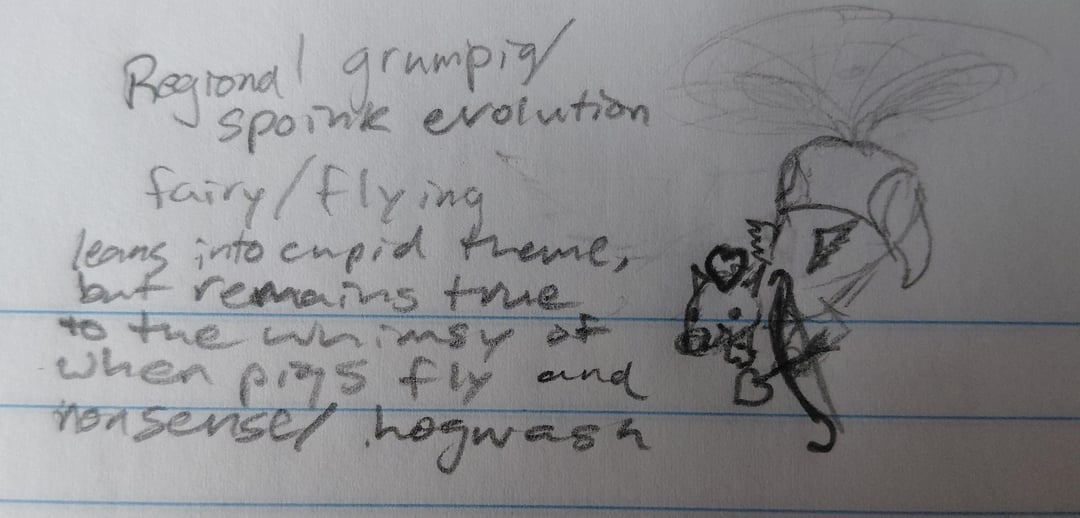 Regional grumpig/
spoink evolution
fairy/flying
leans into cupid theme,
but remains true
to the whimsy of
when pigs fly and
nonsense/ hogwash